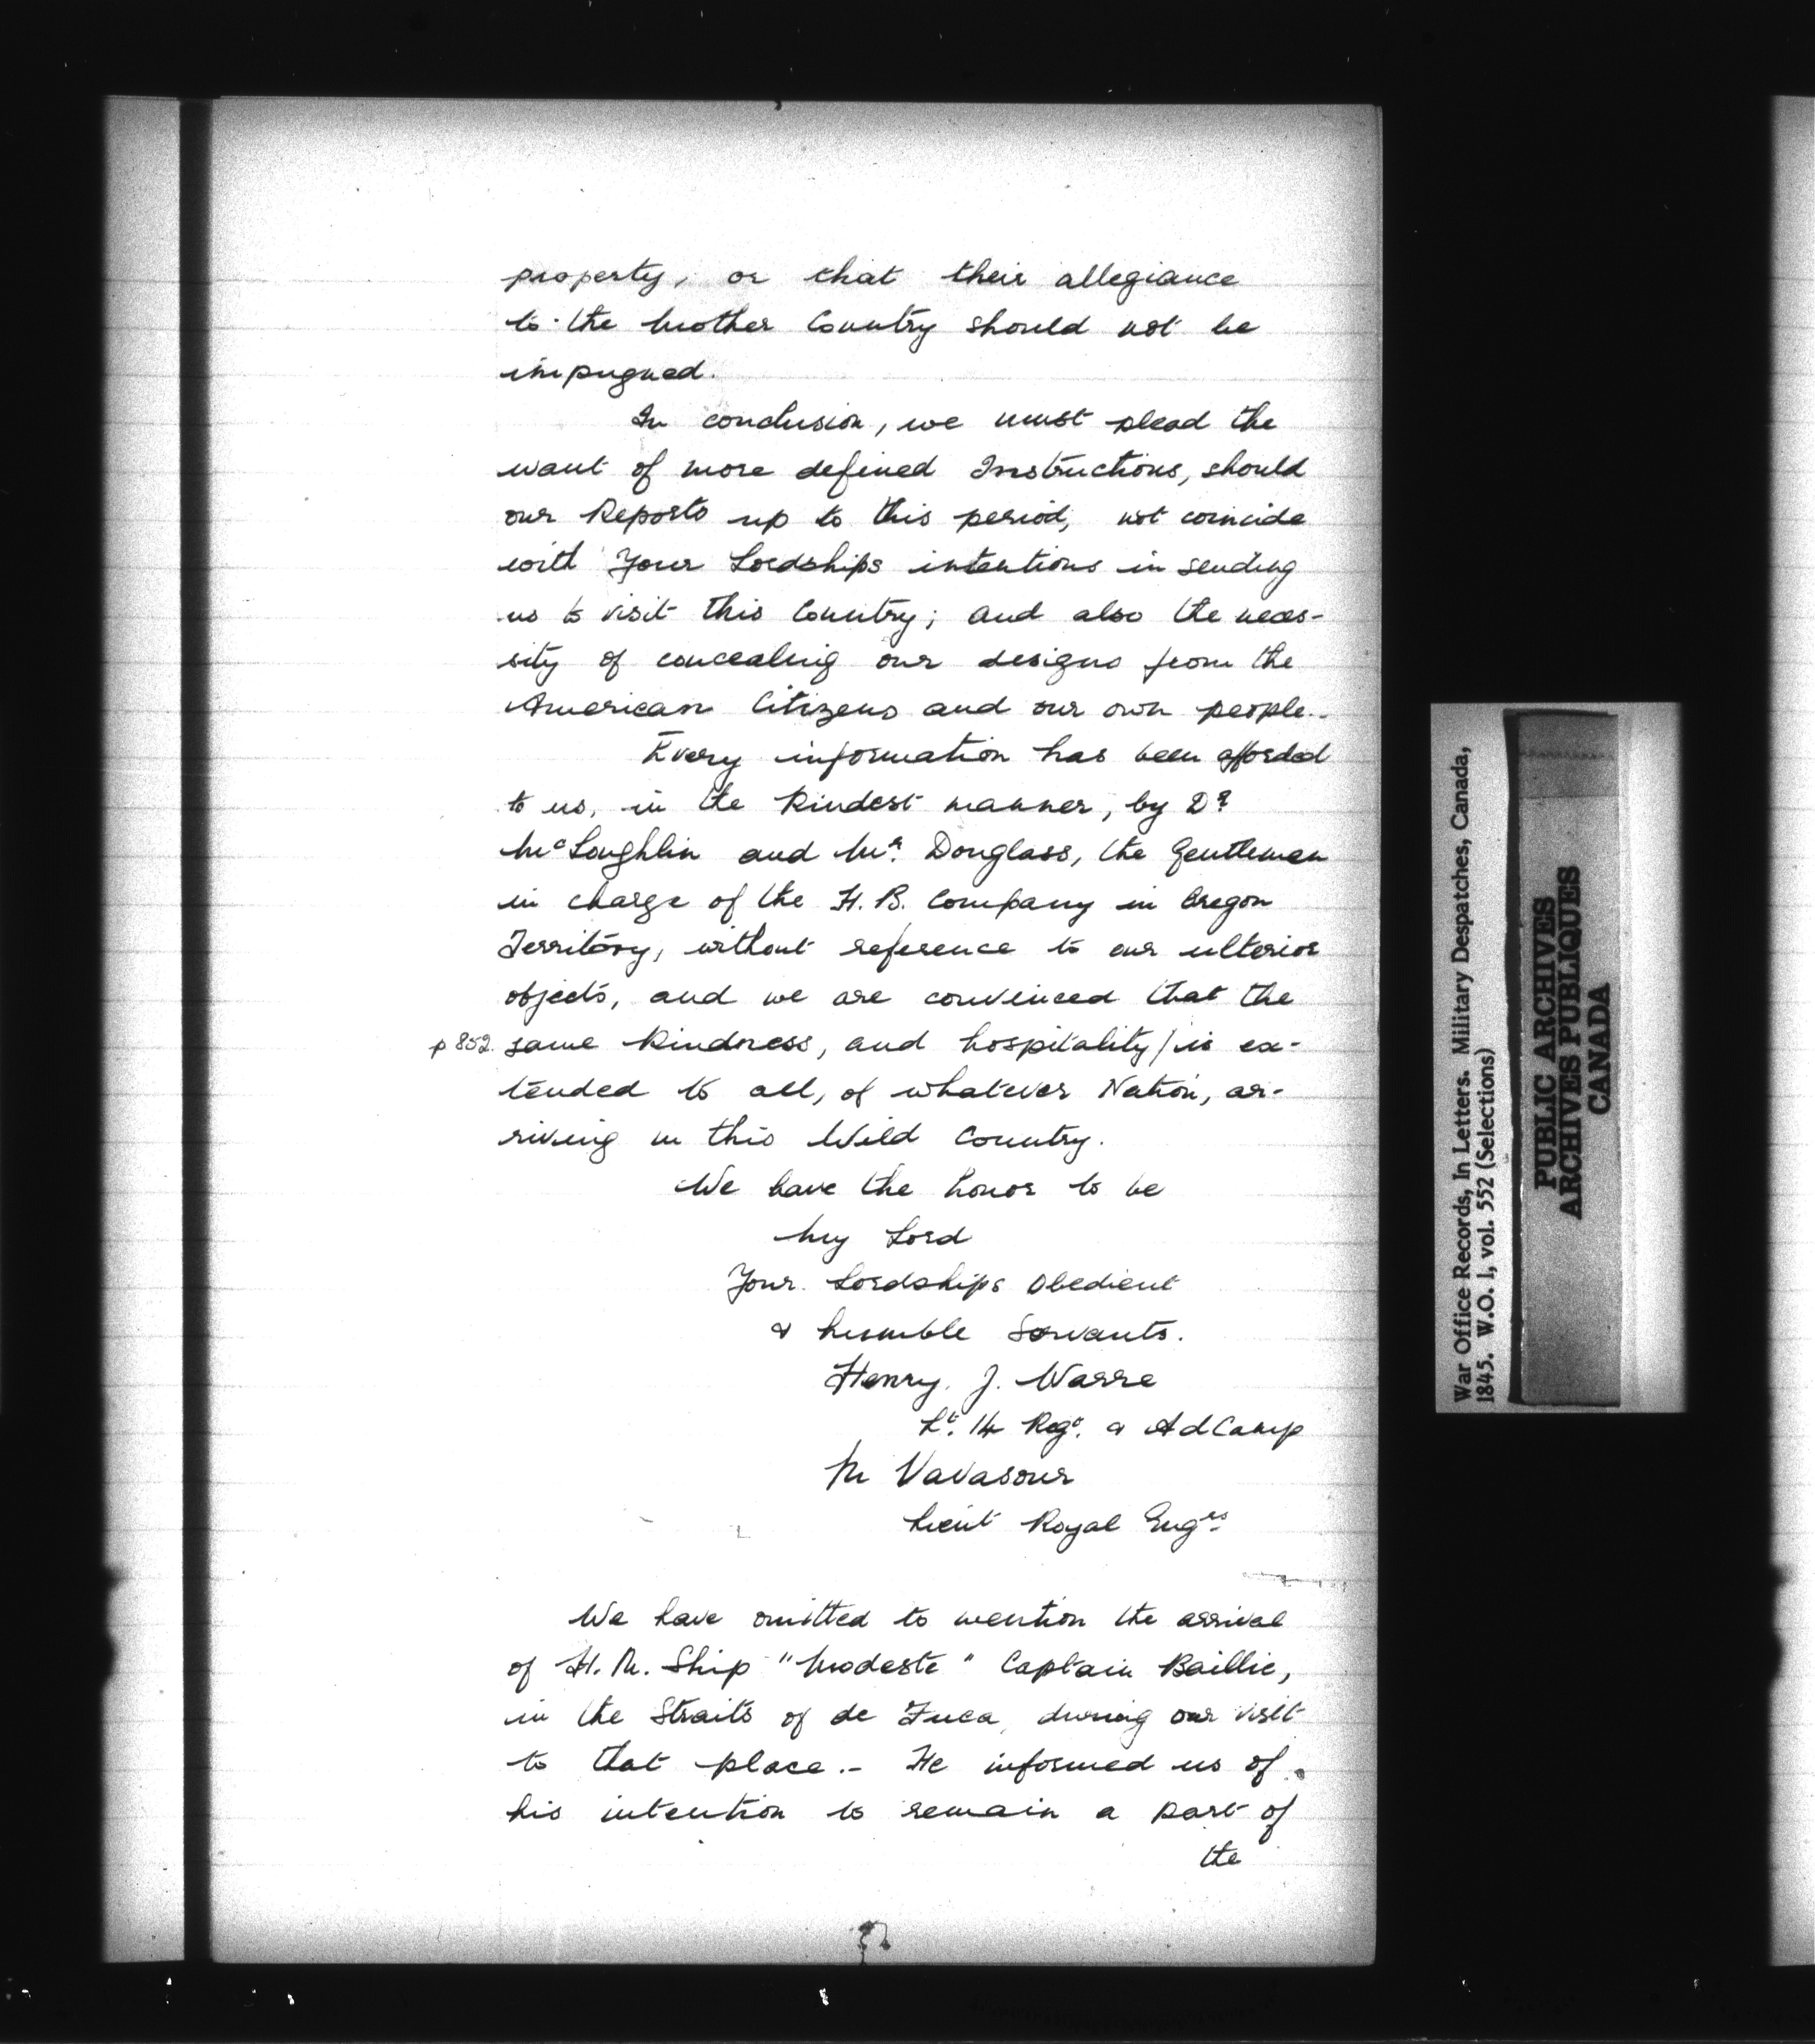 property, or that their allegiance
to the Mother Country should not be
impugned.
In conclusion, we must plead the
want of more defined Instructions, should
our Reports up to this period, not coincide
with Your Lordships intentions in sending
us to visit this Country; and also the neces-
sity of concealing our designs from the
American Citizens and our own people.-
Every information has been afforded
to us, in the kindest manner, by Dr.
McLoughlin and Mr. Douglass, the Gentlemen
in charge of the H. B. Company in Oregon
Territory, without reference to our ulterior
objects, and we are convinced that the
p 852. same kindness, and hospitality/ is ex-
tended to all, of whatever Nation, ar-
riving in this Wild Country.
We have the honor to be
My Lord
Your Lordships Obedient
& humble Servants.
Henry. J. Warre
Lt. 14 Regt. & AdCamp
M Vavasour
Lieut Royal Engrs
We have omitted to mention the arrival
of H. M. Ship "Modeste" Captain Baillie,
in the Straits of de Fuca, during our visit
to that place.- He informed us of
his intention to remain a part of
the
War Office Records, In Letters. Military Despatches, Canada,
1845. W.O. 1, vol. 552 (Selections)
PUBLIC ARCHIVES
ARCHIVES PUBLIQUES
CANADA